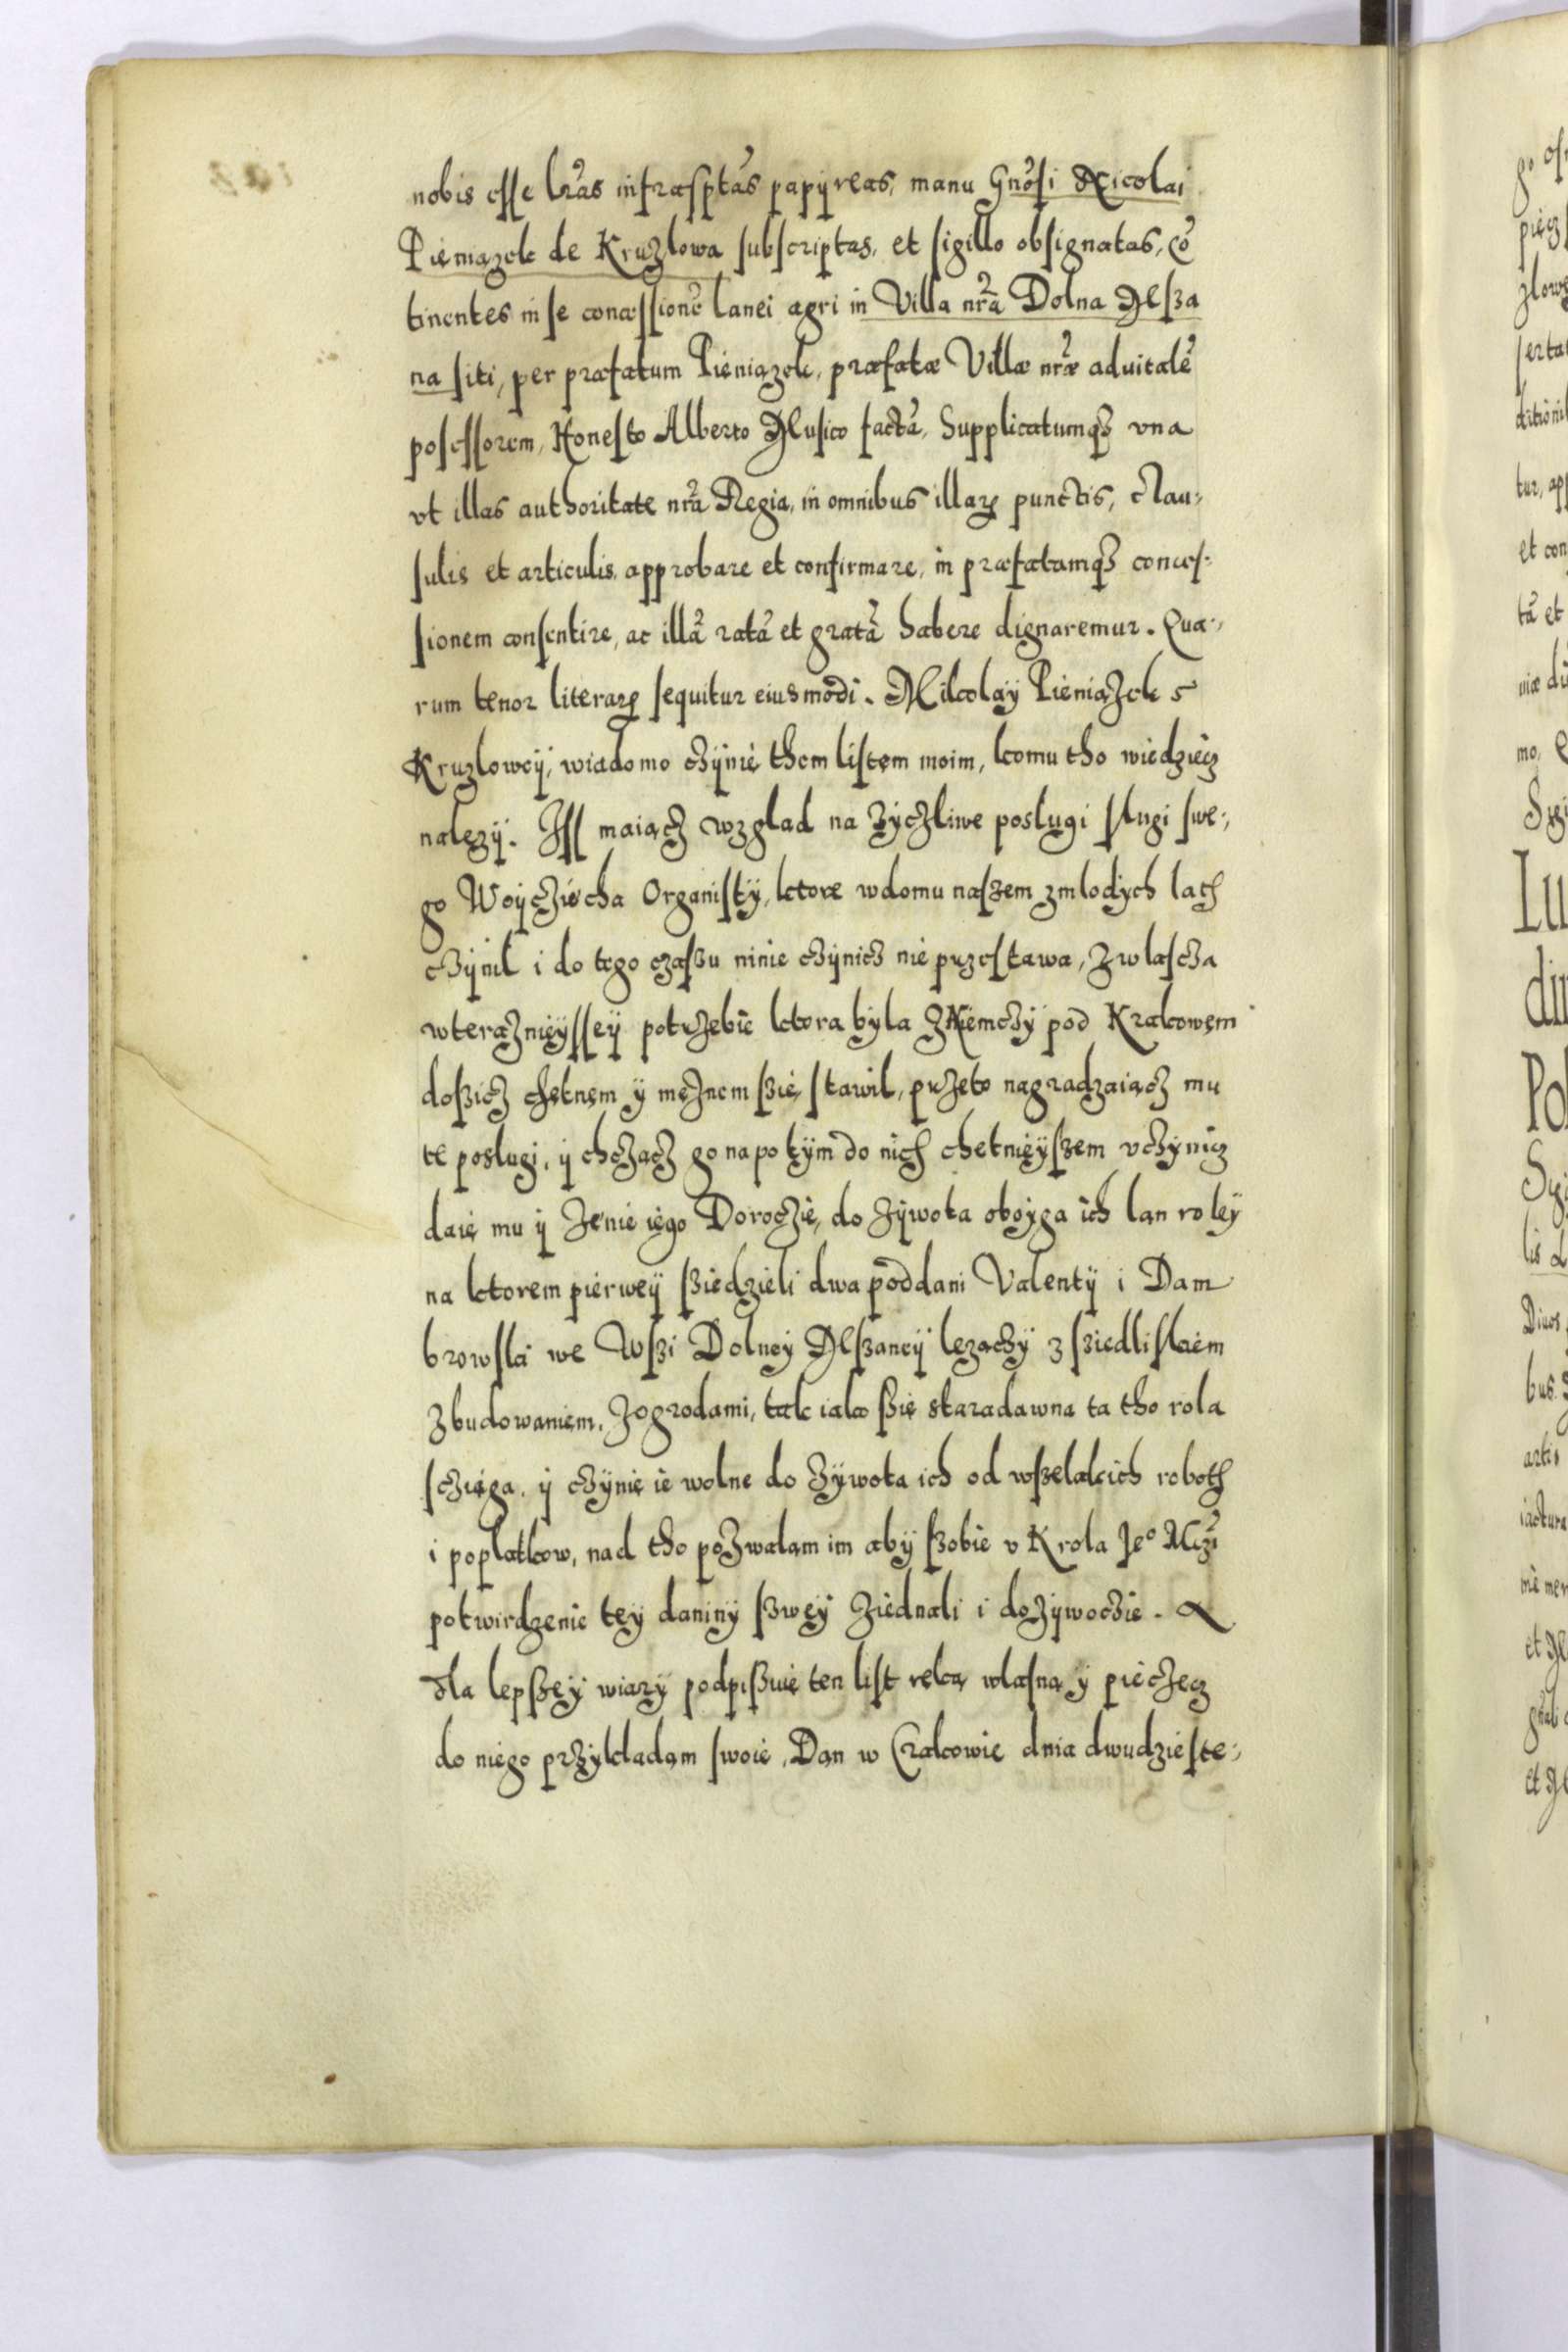 nobis esse lr̃as infrasptãs papÿreas, manu Gnõsi Nicolai
Pieniązek de Kruzlowa subscriptas, et sigillo obsignatas, cõ
tinentes in se concessionẽ lanei agri in Villa nr̃a Dolna Mszą
na siti, per præfatum Pieniązek, præfatæ Villæ nr̃æ aduitalẽ
posessorem, Honesto Alberto Musico factã, Supplicatumqꝫ vna
vt illas authoritate nr̃a Regia, in omnibus illaꝝ punctis, clau-
sulis et articulis, approbare et confirmare, in præfatamqꝫ conces-
sionem consentire, ac illã ratã et gratã habere dignaremur. Qua-
rum tenor literaꝝ sequitur eiusmodi. Mikolaÿ Pieniązek s
Kruzloweÿ, wiadomo czÿnię them listem moim, komu tho wiedziecz
należÿ. Iss maiącz wzgląd na zÿczliwe poslugi slugi swe-
go Woÿcziecha Organistÿ, ktore w domu naszem z mlodÿch lath
czÿnil i do tego czaszu ninie czÿnicz nie przestawa, zwlascza
w terażnieÿsseÿ potrzebie ktora bÿla z Niemczÿ pod Krakowem
doszicz chetnem ÿ meżnem szię stawil, przeto nagradzaiącz mu
te poslugi, ÿ chcząch go napotÿm do nich chetnieÿszem vczÿnicz
daię mu ÿ żenie iego Doroczie, do żÿwota oboÿga ich lan roleÿ
na ktorem pierweÿ sziedzieli dwa poddani Valentÿ i Dam
browski we Wszi Dolneÿ Mszaneÿ lezączÿ z sziedliskiem
z budowaniem, z ogrodami, tak iako szię staradawna ta tho rola
scziąga, ÿ czÿnię ie wolne do żÿwota ich od wszelakich roboth
i poplatkow, nad tho pozwalam im abÿ szobie v Krola Jeº Mczi
potwirdzenie teÿ daninÿ szweÿ ziednali i dożÿwoczie. A
dla lepszeÿ wiarÿ podpiszuię ten list reką wlasną ÿ pieczecz
do niego przÿkladam swoię, Dan w Crakowie dnia dwudzieste-